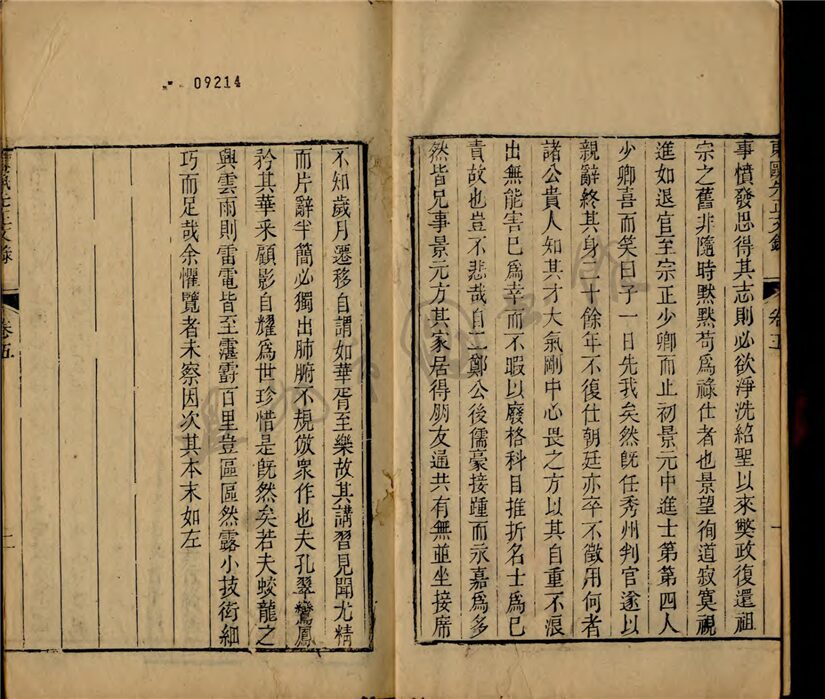 事憤發思得其志則必欲淨洗紹聖以來獘政復還祖
宗之舊非隨時黙黙苟爲祿仕者也景望徇道寂寞視
進如退官至宗正少卿而止初景元中進士第第四人
少卿喜而笑曰子一日先我矣然旣任秀州判官遂以
親辭終其身二十餘年不復仕朝廷亦卒不徵用何者
諸公貴人知其才大氣剛中心畏之方以其自重不浪
出無能害巳爲幸而不暇以廢格科目摧折名士爲巳
責故也豈不悲哉自二鄭公後儒豪接踵而永嘉爲多
然皆兄事景元方其家居得朋友通共有無並坐接席
卷五
一
09214
不知歲月遷移自謂如華胥至樂故其講習見聞尤精
而片辭半簡必獨出肺腑不規倣衆作也夫孔翠鸞鳳
矜其華采顧影自耀爲世珍惜是旣然矣若夫蛟龍之
興雲雨則雷電皆至霮䨴百里豈區區然露小技衒細
巧而足哉余懼覽者未察因次其本末如左
卷五
二